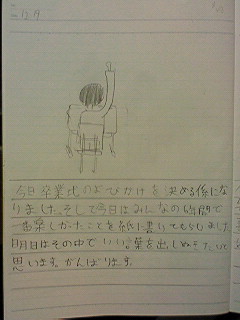 今日卒業式のよびかけを決める係にな
りました。そして今日はみんなの6年間で
一番楽しかったことを紙に書いてもらいました
明日はその中でいい言葉を出し
思います。がんばります。